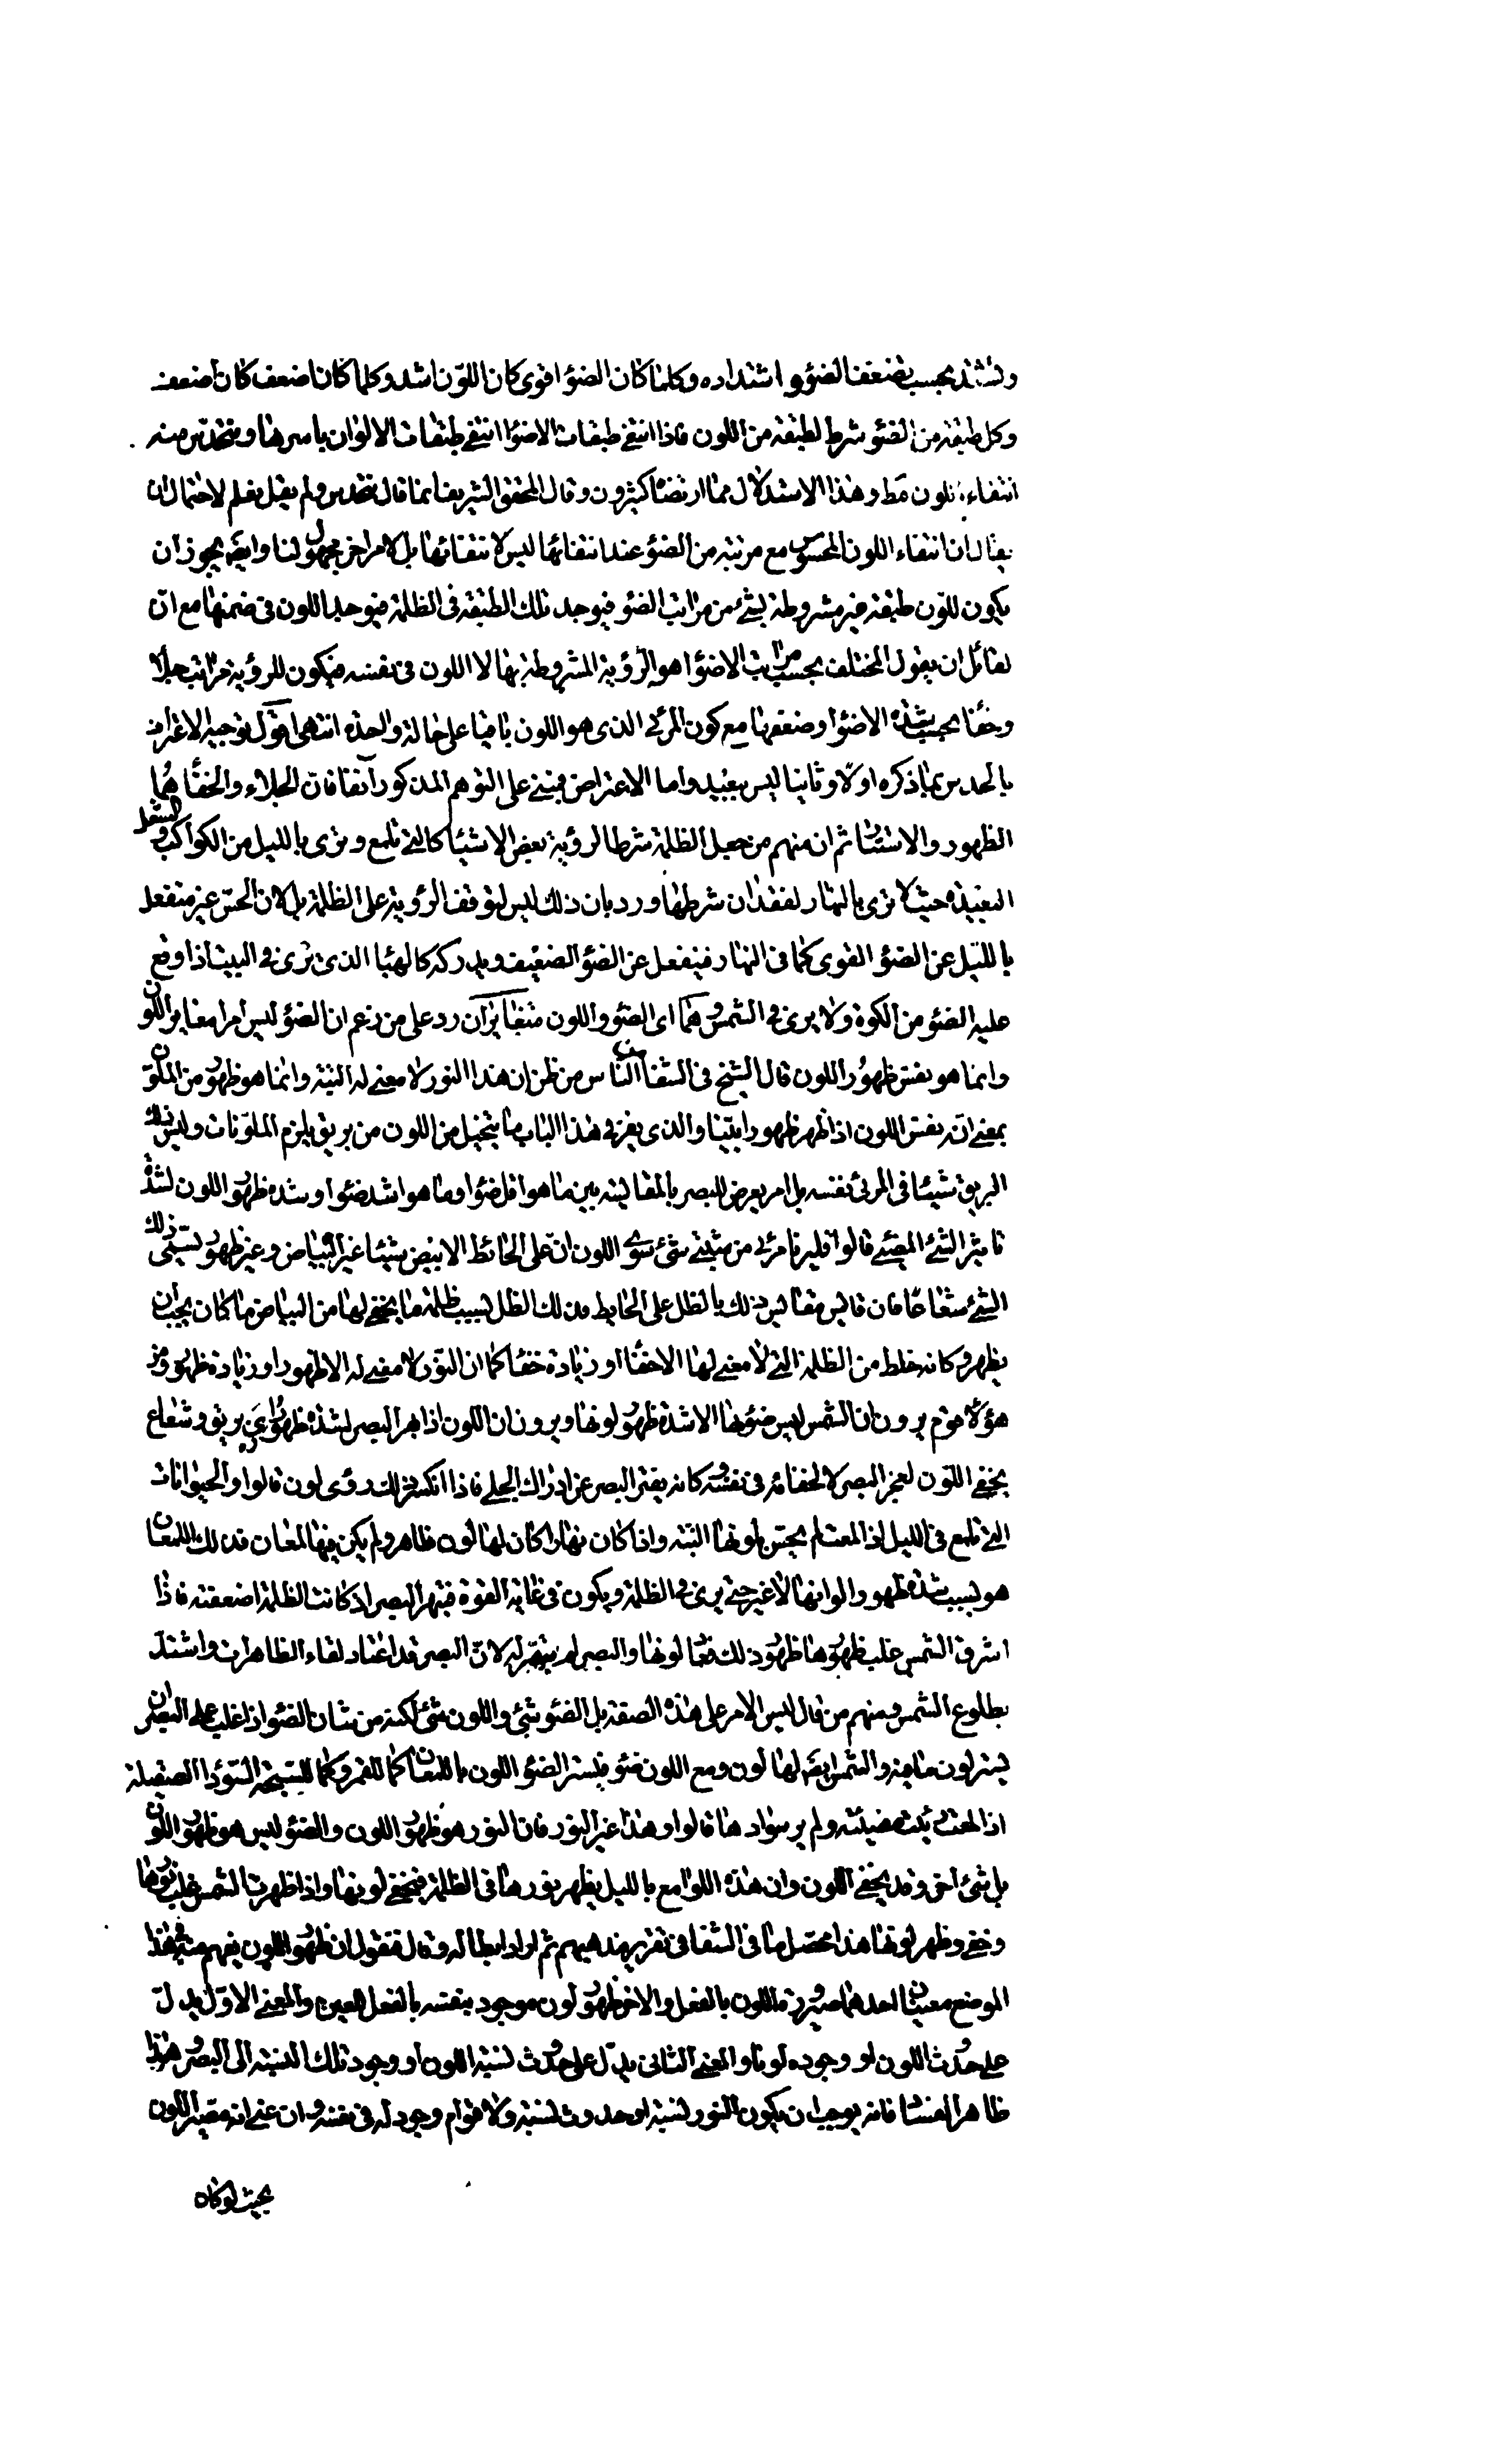 وتشتد بحسب ضعف الضوٴ واشتداده وكلما كان الضوٴ اقوى كان اللون اشد وكلما كان اضعف كان اضعف
وكل طبقة من الضوٴ شرط لطبقة من اللون فاذا انتفى طبقات الاضوٴا انتفى طبقات الالوان باسرها ويتحدس منه
انتفاء اللون مط وهذا الاستدلال مما ارتضاه كثيرون وقال المحقق الشريف انما قال يتحدس ولم يقل يعلم لاحتمال ان
يقال ان انتفاء اللون المحسوس مع مرتبة من الضوٴ عند انتفائها ليس لانتفائها بل لامر اخر مجهول لنا وايضَ يجوز ان
يكون للون طبقة غير مشروطة بشئ من مراتب الضوٴ فيوجد تلك الطبقة فى الظلمة فيوجد اللون فى ضمنها مع ان
لقائل ان يقول المختلف بحسب مراتب الاضوٴا هو الرؤية المشروطة بها لا اللون فى نفسه فيكون للرؤية مراتب جلاٴ
وخفاٴ بحسب شدة الاضوٴا وضعفها مع كون المرئى الذى هو اللون باقيا على حالة واحدة انتهى اقول توجيه الاعتراض
بالحدس بما ذكره اولا وثانيا ليس ببعيد واما الاعتراض فمبنى على التوهم المذكور آنفا فان الجلاء والخفاٴ هما
الظهور والاستتار ثم ان منهم من جعل الظلمة شرطا لرؤية بعض الاشيٴا كالتى تلمع وترى بالليل من الكواكب والشعل
البعيدة حيث لا ترى بالنهار لفقدان شرطها ورد بان ذلك ليس لتوقف الرؤية على الظلمة بل لان الحس غير منفعل
بالليل عن الضوٴ القوى كما فى النهار فينفعل عن الضوٴ الضعيف ويدركه كالهبٴا الذى يرى فى البيت اذا وقع
عليه الضوٴ من الكوة ولا يرى فى الشمس وهما اى الضوٴ واللون متغايران رد على من زعم ان الضوٴ ليس امرا مغايرا للون
وانما هو نفس ظهور اللون قال الشيخ فى الشفٴا من الناس من ظن ان هذا النور لا معنى له البتة وانما هو ظهور من الملون
بمعنى انه نفس اللون اذا ظهر ظهورا بيّنا والذى يغر فى هذا الباب ما يتخيل من اللون من بريق يلزم الملونات وليس ذلك
البريق شيئا فى المرئى نفسه بل امر يعرض للبصر بالمقايسة بين ما هو اقل ضوٴا وما هو اشد ضوٴا وشدة ظهور اللون لشدة
تاثير الشئ المضئ قالوا فليرنا مرئى من مثبتى شئ سوى اللون ان على الحائط الابيض شيئا غير البياض وغير ظهور يسمى ذلك
الشئ شعاعا فان قايس مقايس ذلك بالظل على الحايط فذلك الظل بسبب ظلمة ما يخفى لها من البياض ما كان يجب ان
يظهر وكانه خلط من الظلمة التى لا معنى لها الا خفٴا او زيادة خفٴا كما ان النور لا معنى له الا ظهور او زيادة ظهور ومن
هؤلٴا قوم يرون ان الشمس ليس ضوٴها الا شدة ظهور لونها ويرون ان اللون اذا بهر البصر لشدة ظهوره رُأى بريق وشعاع
يخفى اللون لعجز البصر لا لخفائه فى نفسه وكانه يفتر البصر عن ادراك الجلى فاذا انكسر ذلك رؤى لون قالوا والحيوانات
التى تلمع فى الليل اذا لمعت لم يحس بلونها البتة واذا كان نهارا كان لها لون ظاهر ولم يكن فيها لمعان فذلك اللمعان
هو بسبب شدة ظهور الوانها لا غير حتى يرى فى الظلمة ويكون فى غاية القوة فبهر البصر اذ كانت الظلمة اضعفته فاذا
اشرق الشمس غلب ظهورها ظهور ذلك فعاد لونها والبصر لم يتحير له لان البصر قد اعتاد لقاء الظاهرات واشتد
بطلوع الشمس ومنهم من قال ليس الامر على هذه الصفة بل الضوٴ شئ واللون شئ لكنه من شان الضوٴ اذا غلب على البصر ان
يستر لون ما فيه والشمس ايضَ لها لون ومع اللون ضوٴ فيستر الضوٴ اللون باللمعان كما للقمر وكما للسبجة السودٴا الصقيلة
اذا لمعت رئيت مضيئة ولم ير سوادها قالوا وهذا غير النور فان النور هو ظهور اللون والضوٴ ليس هو ظهور اللون
بل شئ آخر وقد يخفى اللون وان هذه اللوامع بالليل يظهر نورها فى الظلمة فيخفى لونها واذا ظهرت الشمس غلب نورها
وخفى وظهر لونها هذا محصل ما فى الشفا فى تقرير مذهبهم ثم اراد ابطاله وقال فنقول ان ظهور اللون يفهم منه فى هذا
الموضع معنيان احدهما صيرورة اللون بالفعل والاخر ظهور لون موجود بنفسه بالفعل للعين والمعنى الاول يدل
على حدوث اللون او وجوده لونا والمعنى الثانى يدل على حدوث نسبة اللون او وجود تلك النسبة الى البصر وهذا
ظاهر الفسٴا فانه يوجب ان يكون النور نسبة او حدوث نسبة ولا قوام وجود له فى نفسه وان عنى انه مصير اللون
بحيث لو كان